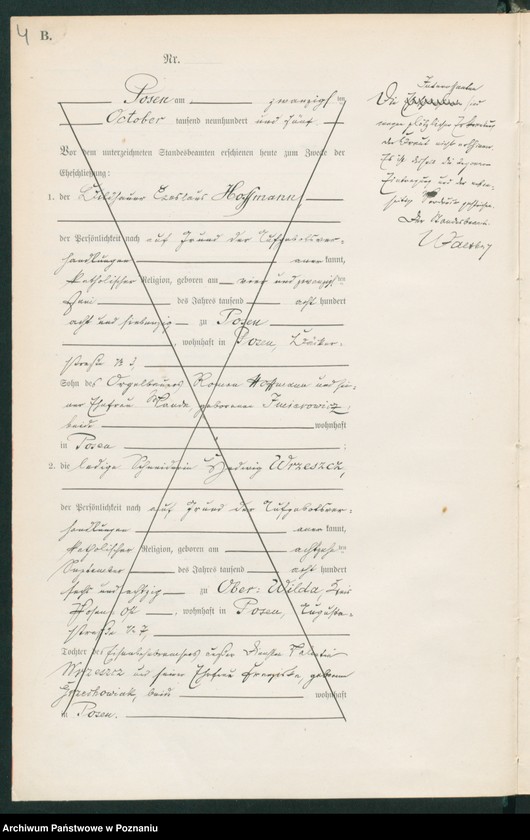 4
B.
Nr.
Posen am zwanzigsten
October tausend neunhundert und fünf
Vor dem unterzeichneten Standesbeamten erschienen heute zum Zwecke der
Eheschließung:
1. der Czeslaus Hoffmann
der Persönlichkeit nach auf Grund der Aufgebotsver-
handlungen anerkannt,
katholischer Religion, geboren am vier und zwanzigsten
Juni des Jahres tausend acht hundert
acht und siebenzig zu Posen
, wohnhaft in Posen,
straße № 3,
Sohn des Orgelbauers Roman Hoffmann und sei-
ner Ehefrau Wanda, geborenen
beide wohnhaft
in Posen ;
2. die ledige Schneiderin Hedwig Wrzeszcz,
der Persönlichkeit nach auf Grund der Aufgebotsver-
handlungen anerkannt,
katholischer Religion, geboren am achtzehnten
September des Jahres tausend acht hundert
sechs und achtzig zu Ober-Wilda Kreis
Posen Ost, wohnhaft in Posen, Augusta-
straße № 7,
Tochter des außer Diensten Valentin
Wrzeszcz und seiner Ehefrau Franziska, geborenen
Grzeskowiak, beide wohnhaft
in Posen.
Die sind
wegen plötzlicher Erkrankung
der Braut nicht erschienen.
Es ist deshalb die
Eintragung und der neben-
Vordruck gestrichen.
Der Standesbeamte.
Archiwum Państwowe w Poznaniu